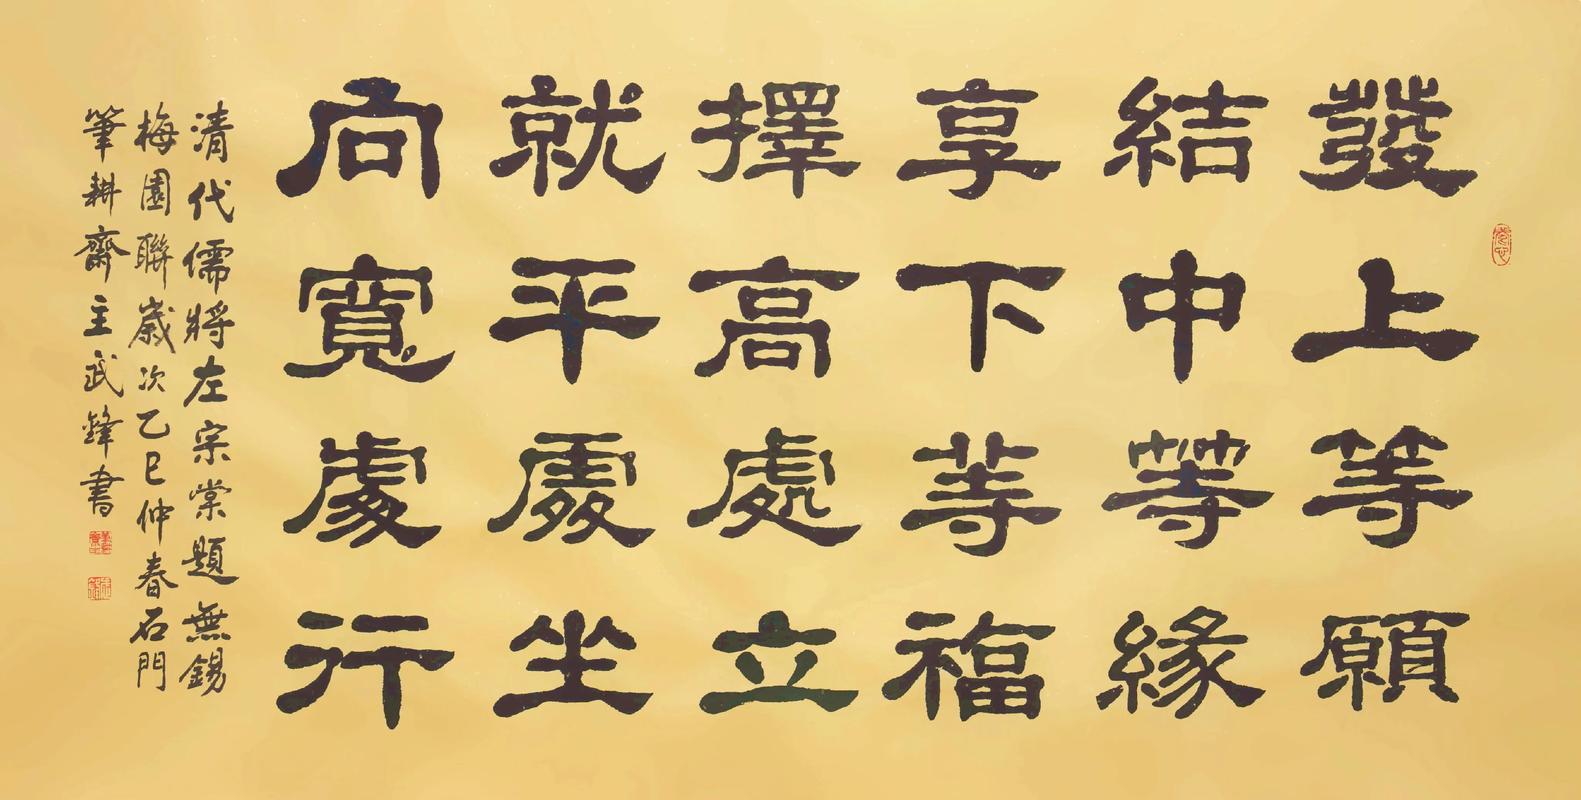 發上等願
結中等緣
享下等福
擇高處立
就平處坐
向寬處行
清代儒將左宗棠題無錫
梅園聯歲次乙巳仲春石門
筆耕齋主武鋒書